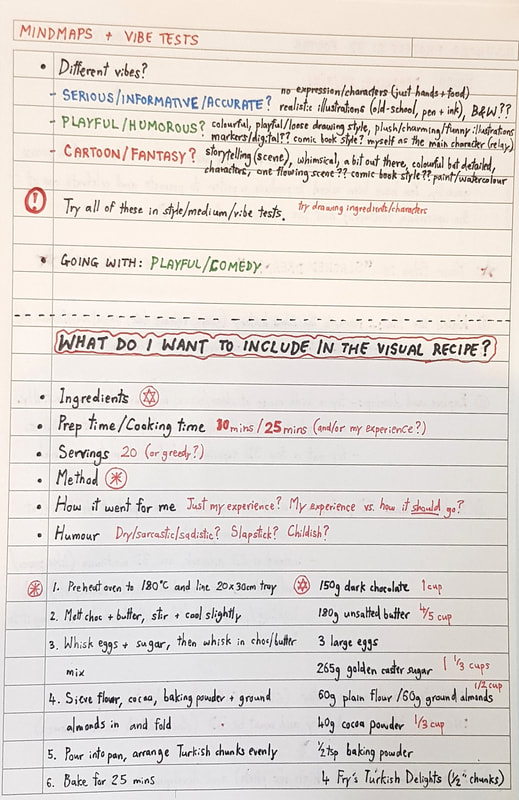 MINDMAPS + VIBE TESTS
• Different vibes?
- SERIOUS/INFORMATIVE/ACCURATE? no expression/characters (just hands + food)
realistic illustrations (old-school, pen + ink), B&W??
- PLAYFUL/HUMOROUS? colourful, playful/loose drawing style, plush/charming/funny illustrations
markers/digital?? comic book style? myself as the main character (relay)
- CARTOON/FANTASY? storytelling (scene), whimsical, a bit out there, colourful but detailed,
characters, one flowing scene?? comic book style?? paint/watercolour
! Try all of these in style/medium/vibe tests. try drawing ingredients/characters
• GOING WITH: PLAYFUL/COMEDY
WHAT DO I WANT TO INCLUDE IN THE VISUAL RECIPE?
• Ingredients
• Prep time/Cooking time 10mins/25mins (and/or my experience?)
• Servings 20 (or greedy?)
• Method
• How it went for me Just my experience? My experience vs. how it should go?
• Humour Dry/sarcastic/sadistic? Slapstick? Childish?
1. Preheat oven to 180°C and line 20x30cm tray
2. Melt choc + butter, stir + cool slightly
3. Whisk eggs + sugar, then whisk in choc/butter
mix
4. Sieve flour, cocoa, baking powder + ground
almonds in and fold
5. Pour into pan, arrange Turkish chunks evenly
6. Bake for 25 mins
150g dark chocolate 1 cup
180g unsalted butter 4/5 cup
3 large eggs
265g golden caster sugar 1 1/3 cups
60g plain flour /60g ground almonds 1/2 cup
40g cocoa powder 1/3 cup
1/2 tsp baking powder
4 Fry's Turkish Delights (1/2" chunks)